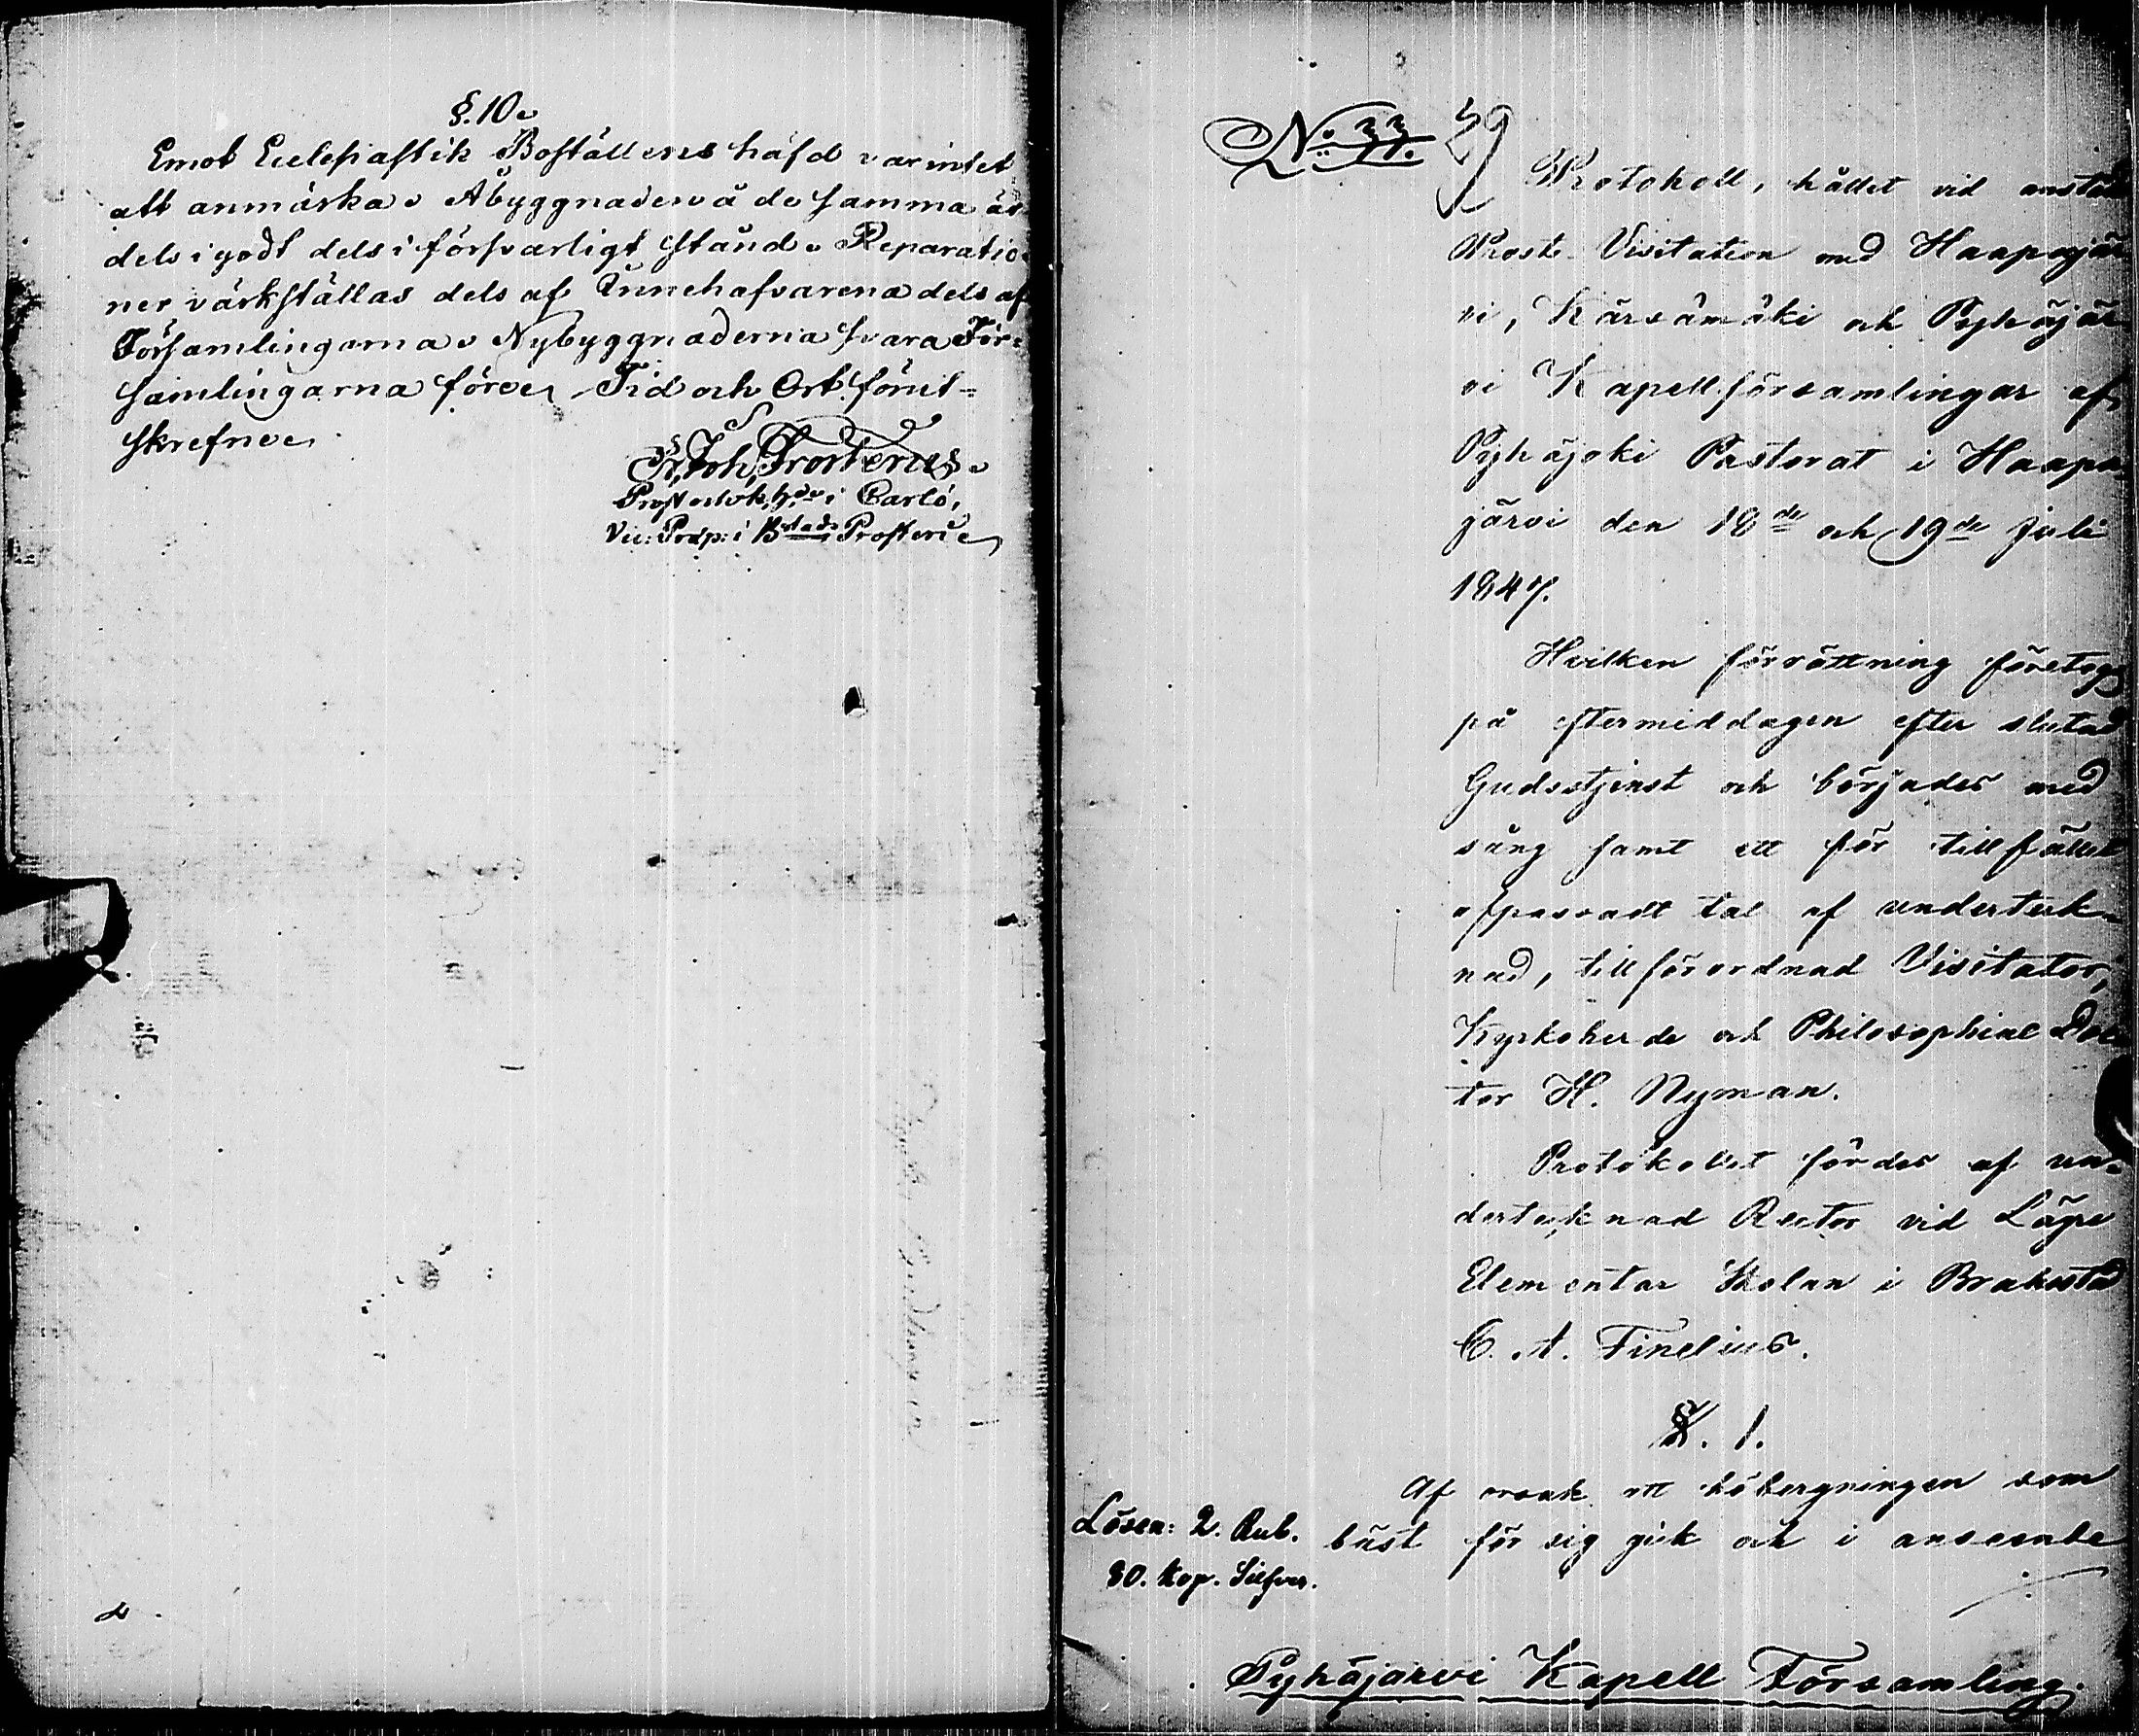 §. 10.
Emot Ecclesiastik Boställens häfd var intet
att anmärka. Åbyggnaden å de samma är
dels i godt dels i försvarligt stånd. Reparatio-
ner värkställas dels af Innehafvarena dels af
Församlingarna. Nybyggnaderna svara För-
samlingarna före. Tid och Ort förut-
skrefne.
Joh. Frosterus.
Prost och k.h.de i Carlö,
Vic: Præp: i B:stads Prosteri
No 33 29
Protokoll, hållet vid anstäld
Prost-Visitation med Haapajär
vi, Kärsämäki och Pyhäjär
vi Kapellförsamlingar af
Pyhäjoki Pastorat i Haapa
järvi den 18de och 19de Juli
1847.
Hvilken förrättning företogs
på eftermiddagen efter slutad
Gudsstjenst och börjades med
sång samt ett för tillfället
afpassadt tal af underteck-
nad, tillförordnad Visitator,
Kyrkoherde och Philosophiae Doc
tor H. Nyman.
Protokollet fördes af un-
dertecknad Rector vid Lägre
Elementar Skolan i Brahestad
C. A. Finelius.
§. 1.
Af orsak att höbergningen som
Lösen: 2. Rub. bäst för sig gick och i anseende
80. Kop. Silfver.
Pyhäjarvi Kapell Församling.